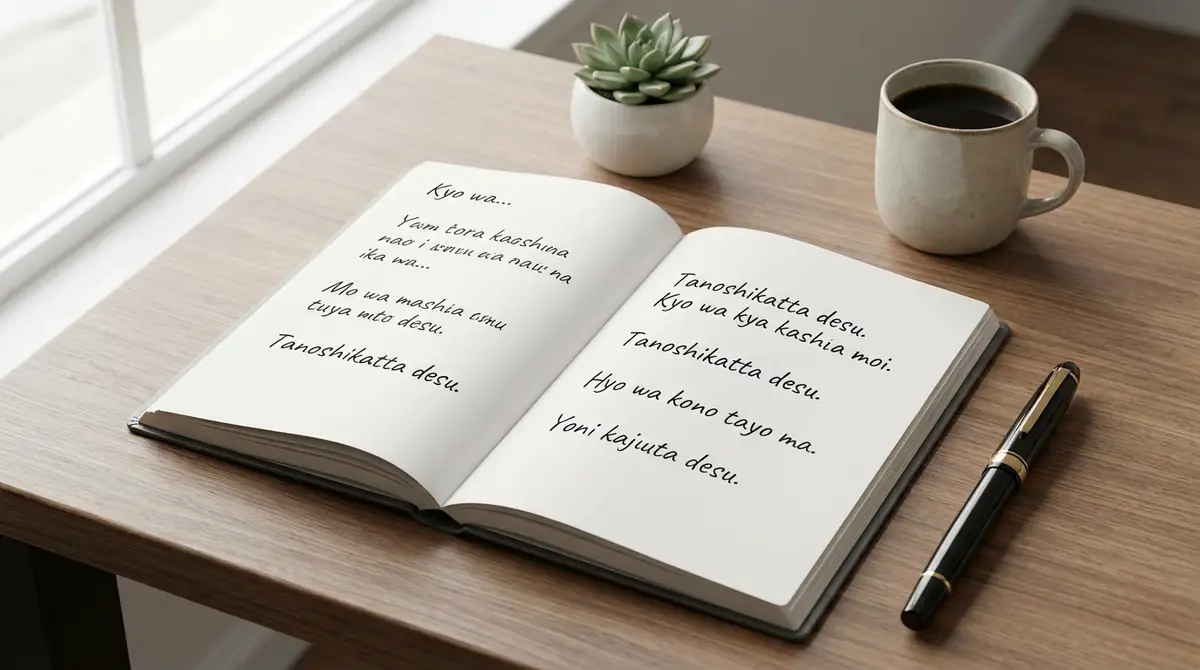 Kyo wa...
Yam tora kaoshina
nao i wa nau na
ika wa...
Mo wa mashia
tuya mto desu.
Tanoshikatta desu.
Tanoshikatta desu.
Kyo wa kya kashia moi.
Tanoshikatta desu.
Hyo wa kono tayo ma.
Yoni kajuuta desu.